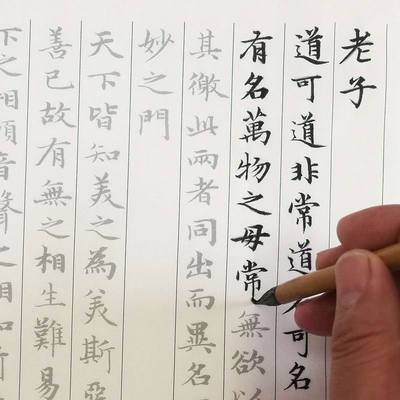 老子
道可道非常道名可名
有名萬物之母常無欲以
其徼此兩者同出而異名
妙之門
天下皆知美之為美斯惡
善已故有無之相生難易
下之相傾音聲之相和前